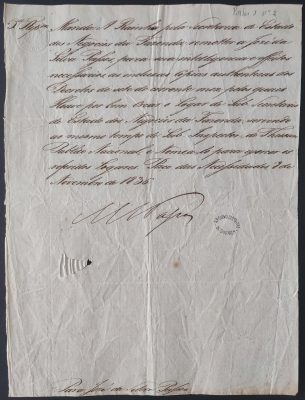 Manda A Rainha pela Secretaria de Estado
dos Negocios da Fazenda, remetter a José da
Silva Passos, para sua intelligencia e effeitos
necessarios as inclusas Copias authenticas dos
Decretos de sete do corrente mez pelos quaes
Houve por bem Crear o Logar de Sub Secretario
de Estado dos Negocios da Fazenda, servindo
ao mesmo tempo de Sub Inspector do Thesouro
Publico Nacional e Nomealo para exercer os
referidos Logares. Paço das Necessidades 8 de
Novembro de 1836
Passos
Para José da Silva Passos